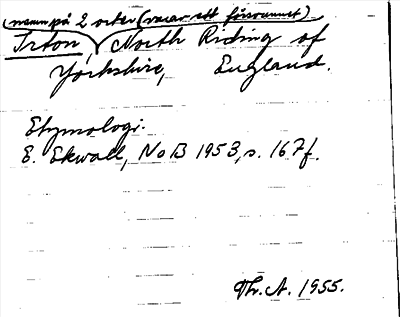 (namn på 2 orter (varav ett försvunnet)
Irton, North Riding of
Yorkshire, England.
Etymologi.
E. Ekwall, NoB 1953, s. 167f.
Th. A. 1955.